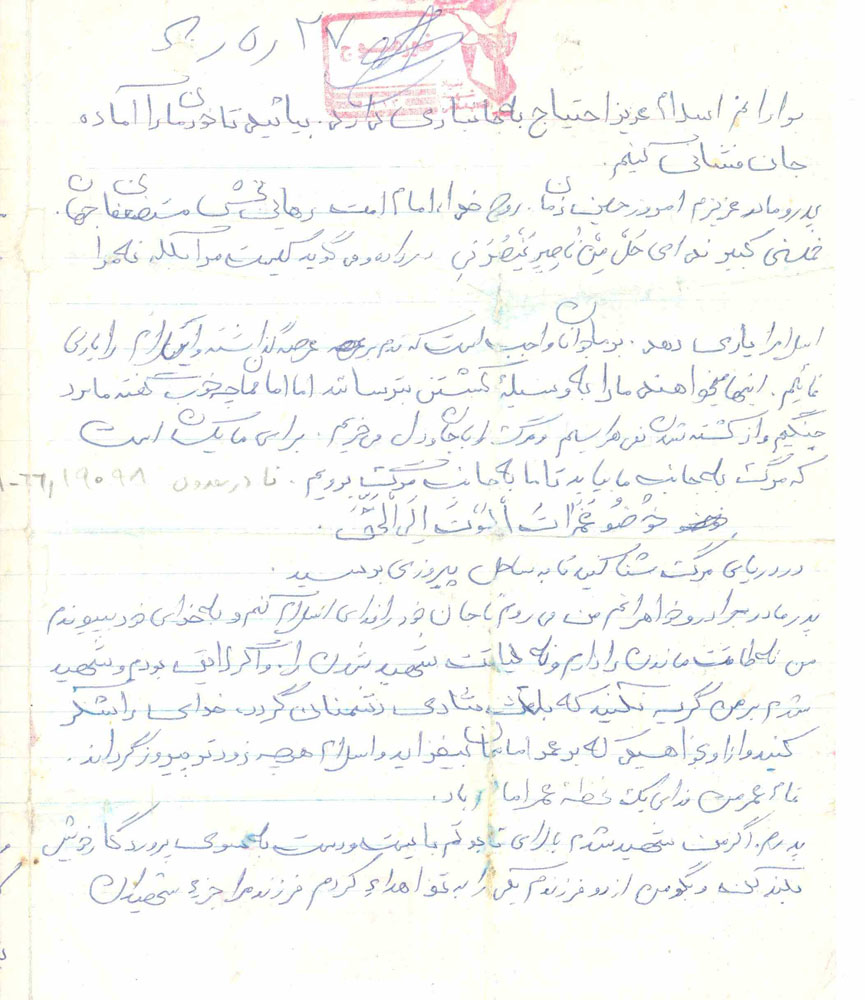 برادرانم اسلام عزیز احتیاج به جانبازی دارد. بیائید تا خودمان را آماده
جان فشانی کنیم.
پدر و مادر عزیزم امروز حسین زمان. روح خدا، امام امت رهائی بخش مستضعفان جهان.
خمینی کبیر ندای هَل مِن ناصِرٍ یَنصُرُنی در داده و می گوید کیست مرا کمک نماید
اسلام را یاری دهد. بر ما جوانان واجب است که قدم بر عرصه گذاشته و اسلام را یاری
نمائیم. اینها میخواهند ما را به وسیلهٔ کشتن بترسانند اما امام ما چه خوب گفته ما مرد
جنگیم و از کشته شدن نمی هراسیم و مرگ را با جان و دل می خریم. برای ما یکسان است
که مرگ به جانب ما بیاید تا ما به جانب مرگ برویم.
خُوضُو غَمَراتَ المَوتَ اِلَی الحَقِّ.
در دریای مرگ شنا کنید تا به ساحل پیروزی برسید.
پدر مادر برادر و خواهرانم من می روم تا جان خود را فدای اسلام کنم و به خدای خود بپیوندم
من نه طاقت ماندن را دارم و نه لیاقت شهید شدن را. و اگر لایق بودم و شهید
شدم بر من گریه نکنید که باعث شادی دشمنان گردد، خدای را شکر
کنید و از او بخواهید که بر عمر امامان بیفزاید و اسلام هر چه زودتر پیروز گرداند.
تمام عمر من فدای یک لحظهٔ عمر امام باد.
پدرم. اگر من شهید شدم بالای تابوتم بایست و دست به سوی پروردگار خویش
بلند کن و بگو من از دو فرزندم یکی را به تو اهداء کردم فرزند مرا جزء شهیدان